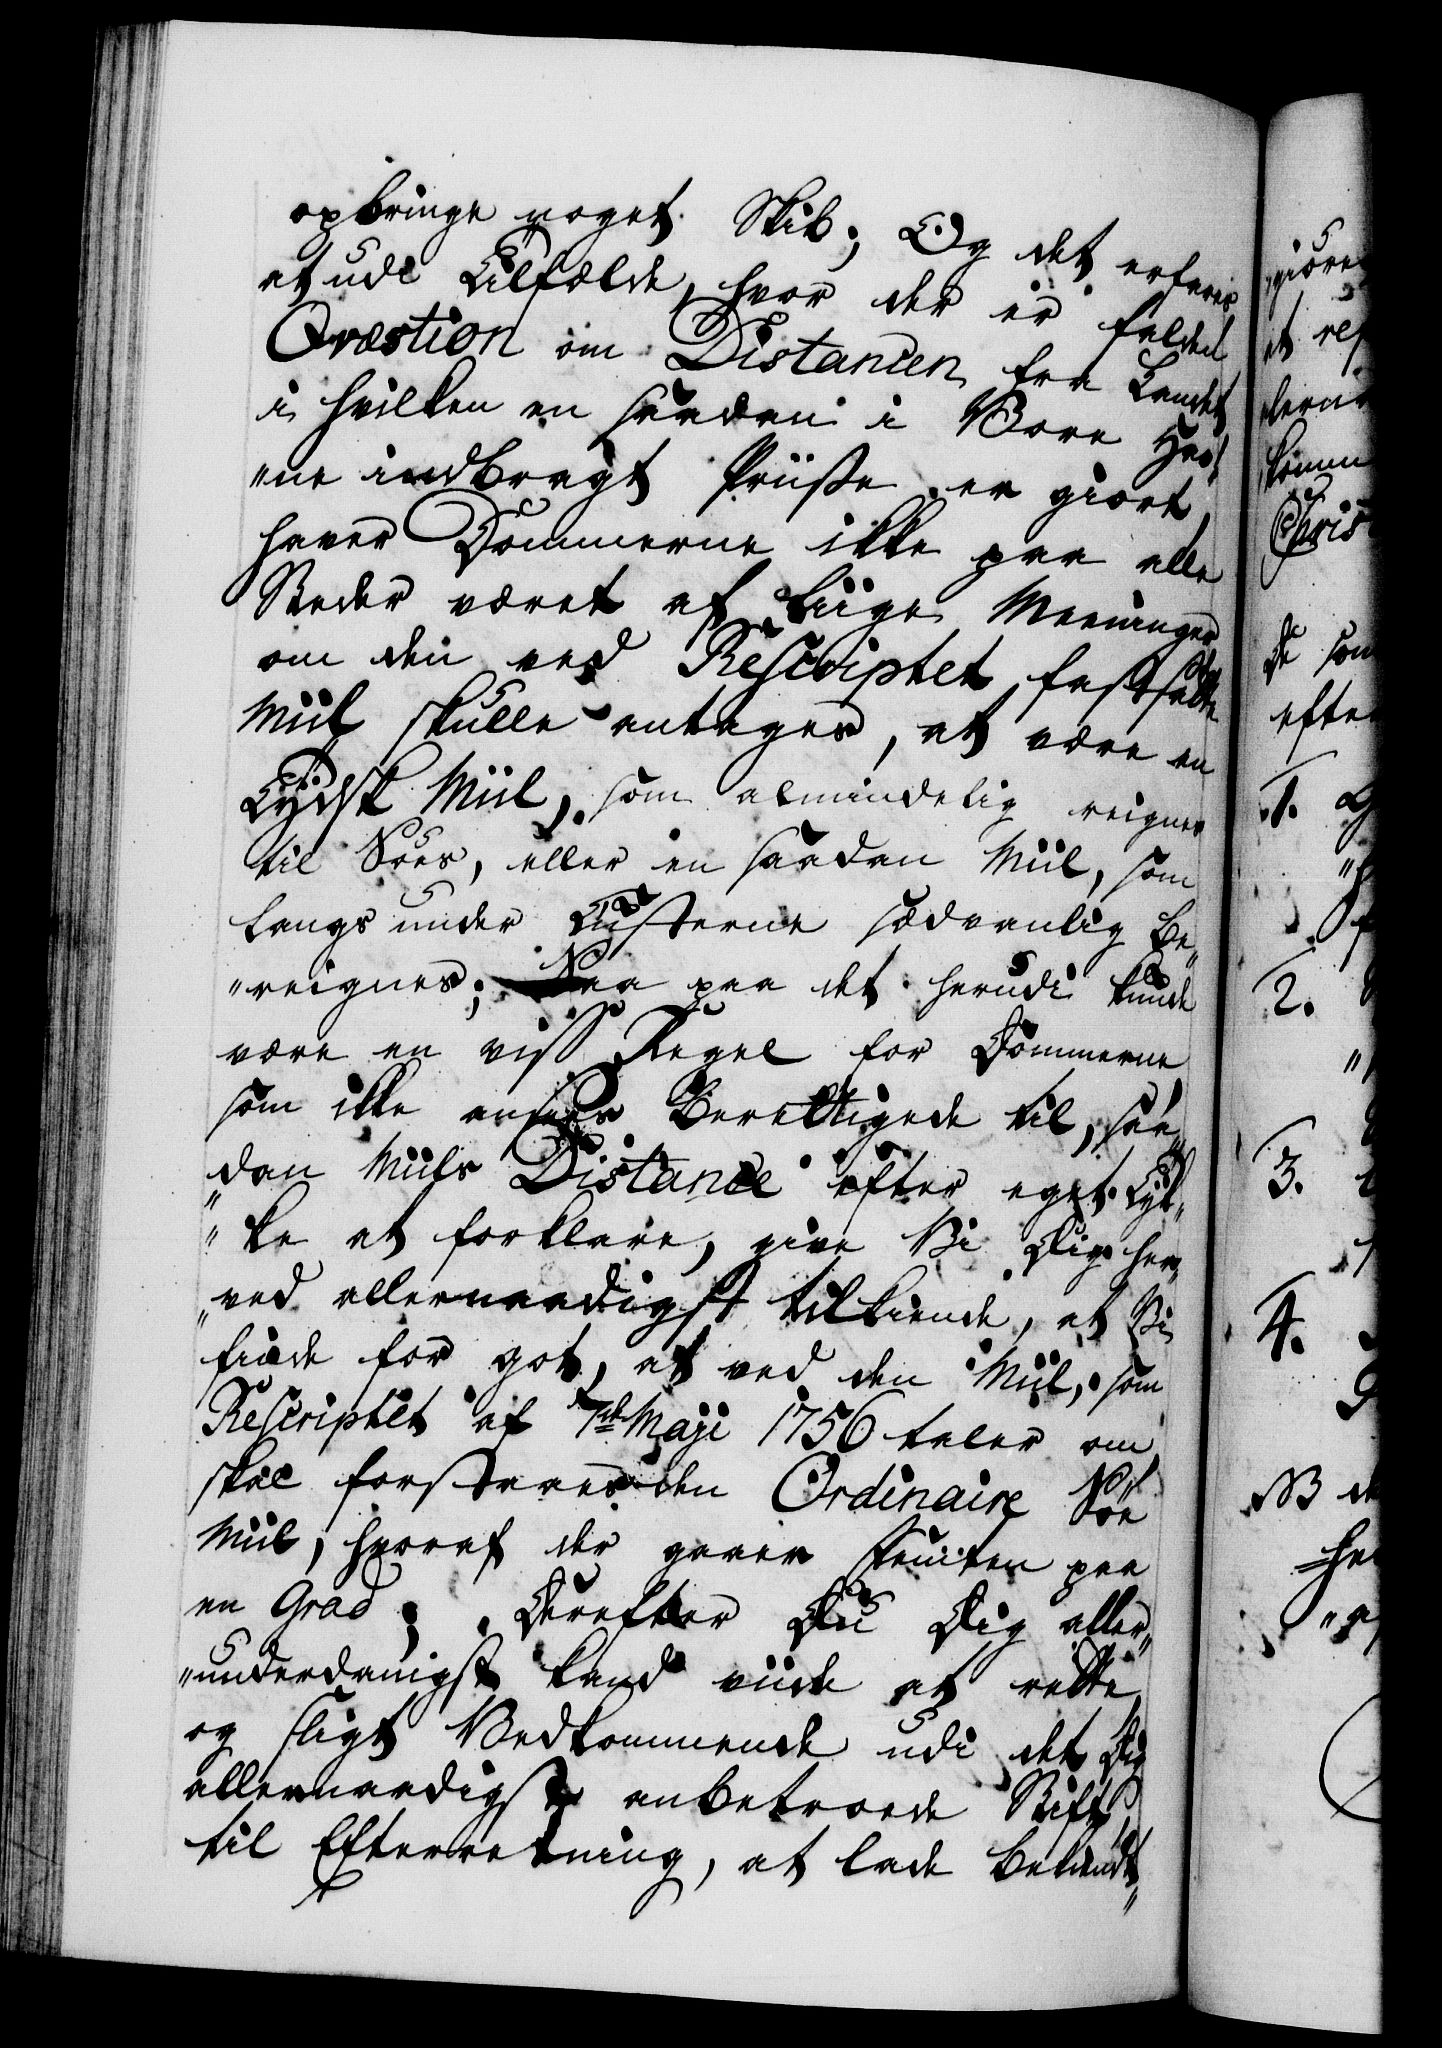 opbringe noget Skib; Og det erfares
at udi Tilfælde, hvor der er falden
Qvæstion om Distancen fra Landet
i hvilken en saadan i Vore Hav¬
"ne indbragt Priisse er giort,
haver Dommerne ikke paa alle
Steder været af liige Meeninger
om den ved Rescriptet fastsatte
Miil skulle antages, at være en
Tydsk Miil, som almindelig reignes
til Söes, eller en saadan Miil, som
langs under Custerne sædvanlig be„
"reignes; Saa paa det herudi kunde
være en viss Regel for Dommerne
som ikke ansees Berettigede til, saa„
"dan Miils Distance efter eget Tyk„
"ke at forklare, give Vi Dig her„
"ved allernaadigst tilkiende, at Vi
finde for got, at ved den Miil, som
Rescriptet af 7de Maji 1756 taler om
skal forstaaes den Ordinaire Söe
Miil, hvoraf der gaaer Femten paa
en Grad; Derefter Du Dig aller„
"underdanigst kand viide at rette,
og sligt Vedkommende udi det Dig
allernaadigst anbetroede Stift
til Efterretning, at lade bekiendt„
giöre
at
Chris
De som
efter
1.
2.
3.
4.